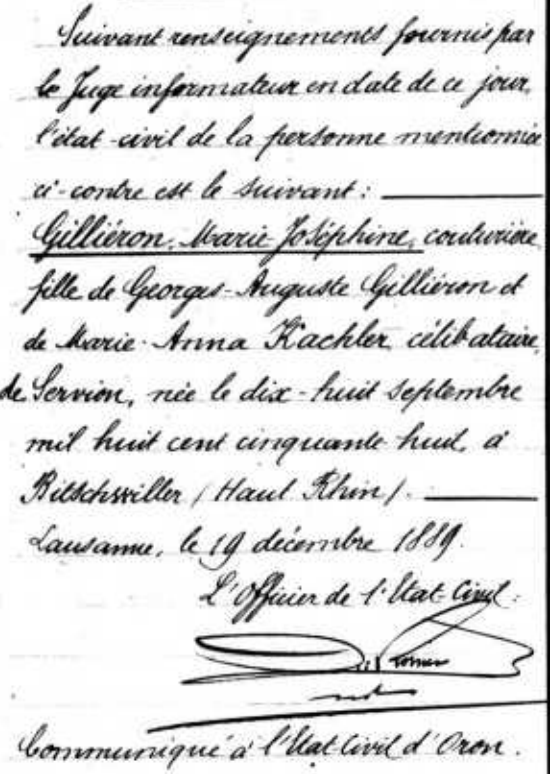 Suivant renseignements fournis par
le Juge informateur en date de ce jour,
l'état-civil de la personne mentionnée
ci-contre est le suivant :
Gilliéron, Marie-Joséphine, couturière,
fille de Georges-Auguste Gilliéron et
de Marie-Anna Kachler, célibataire,
de Servion, née le dix-huit septembre
mil huit cent cinquante-huit, à
Bitschwiller (Haut Rhin).
Lausanne, le 19 décembre 1889.
L'Officier de l'Etat-Civil :
Communiqué à l'Etat Civil d'Oron.